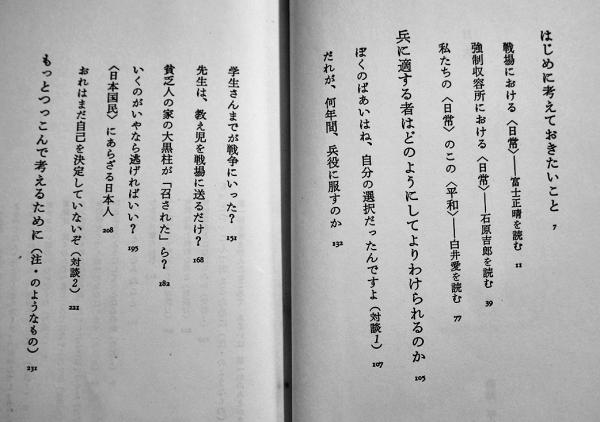 はじめに考えておきたいこと 7
戦場における〈日常〉──富士正晴を読む 11
強制収容所における〈日常〉──石原吉郎を読む 39
私たちの〈日常〉のこの〈平和〉──白井愛を読む 77
兵に適する者はどのようにしてよりわけられるのか 105
ぼくのばあいはね、自分の選択だったんですよ（対談1） 107
だれが、何年間、兵役に服すのか 132
学生さんまでが戦争にいった？ 151
先生は、教え児を戦場に送るだけ？ 168
貧乏人の家の大黒柱が「召された」ら？ 182
いくのがいやなら逃げればいい？ 195
〈日本国民〉にあらざる日本人 208
おれはまだ自己を決定していないぞ（対談2） 221
もっとつっこんで考えるために（注・のようなもの） 231